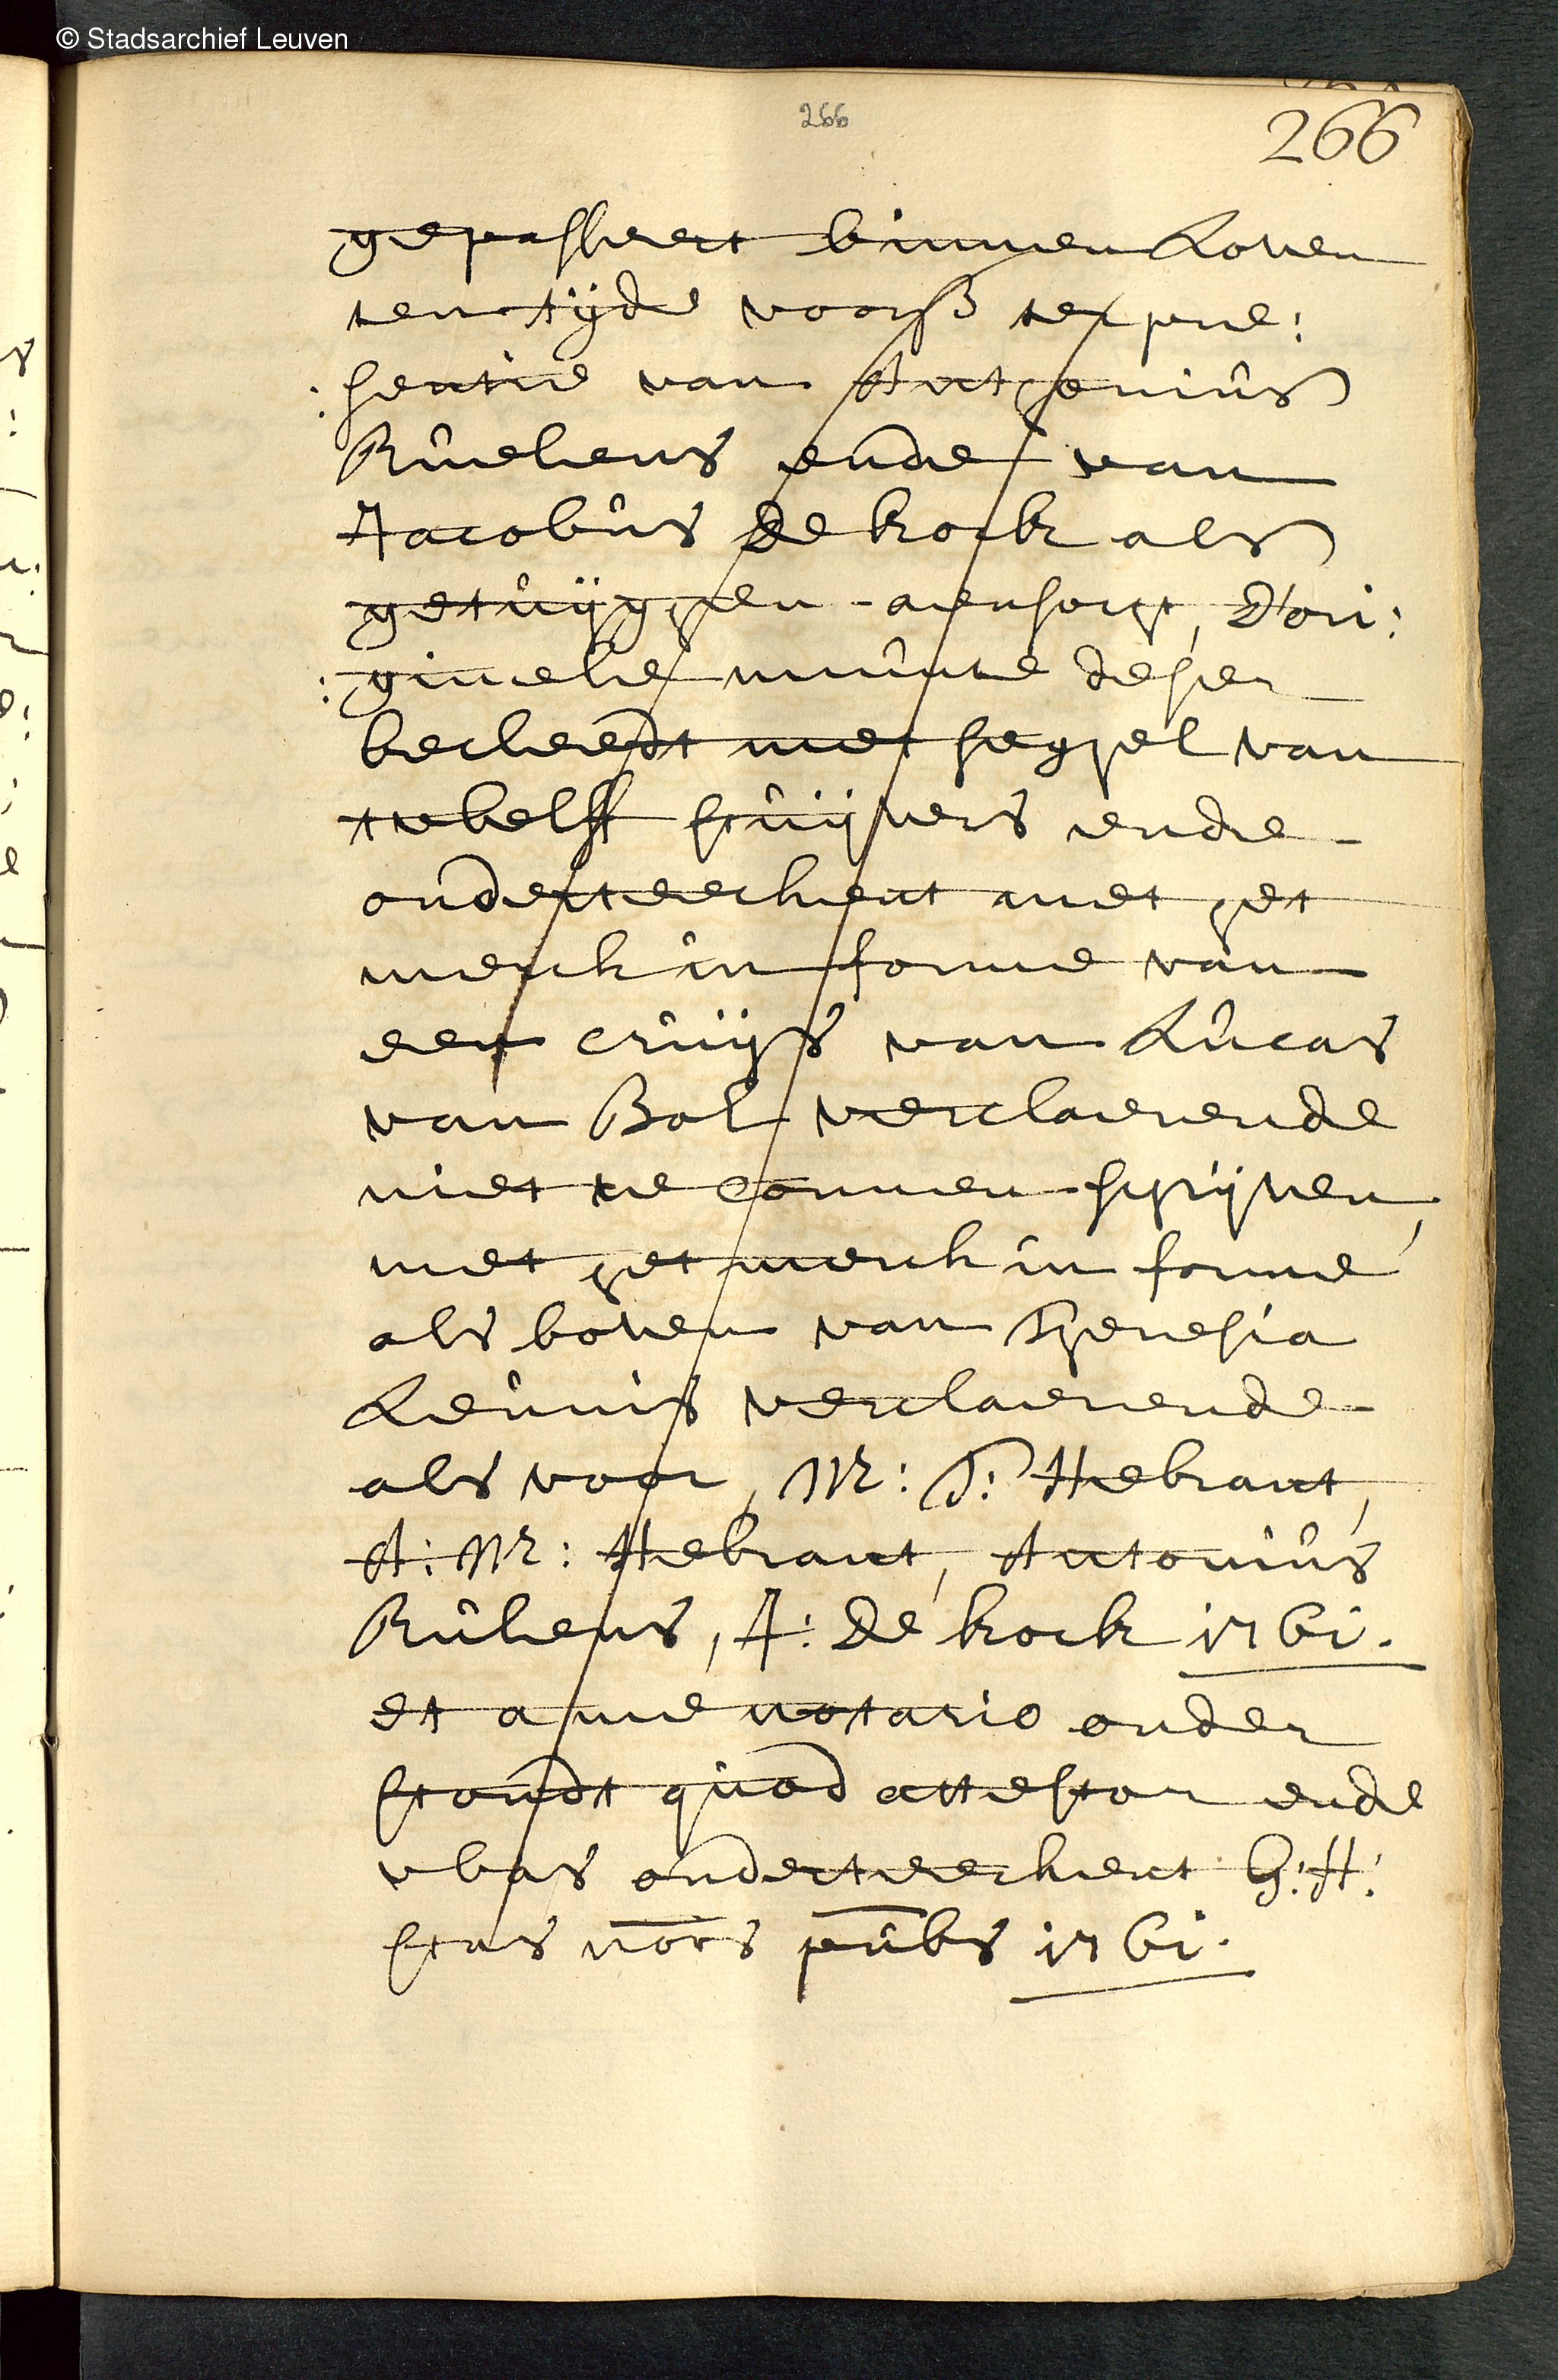 © Stadsarchief Leuven
266
266
gepasseert binnen Loven
ten tijde voors ter pre:
:sentie van Anthonius
Ruelens ende van
Jacobus de kock als
getuijghen aensocht, D'ori:
:ginele minute deser
becleedt met seghel van
twelff stuijvers ende
onderteeckent met het
merck in forme van
een cruijs van Lucas
van Bol verclaerende
niet te connen schrijven,
met het merck in forme
als boven van Theresia
Leunis verclaerende
als voor, M: T: Hebrant,
A: M: Hebrant, Antonius
Rulens, J: De kock 1761.
et a me notario onder
stondt quod attestor ende
was onderteeckent G: H:
stas nors pubs 1761.